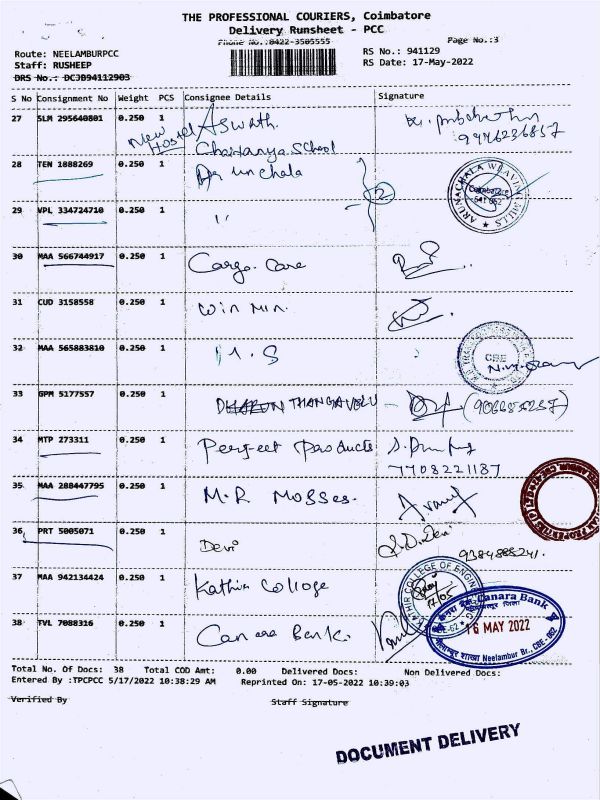 THE PROFESSIONAL COURIERS, Coimbatore
Delivery Runsheet - PCC
Phone No.:0422-3505555
Page No.:3
Route: NEELAMBURPCC
Staff: RUSHEEP
DRS No.: DCJB94112903
RS No.: 941129
RS Date: 17-May-2022
S No Consignment No Weight PCS Consignee Details Signature
27 SLM 295640801 0.250 1 New Hostel Aswath.
Chaitanya School
9446236857
28 TEN 1888269 0.250 1
ARUNACHALA WEAVING MILLS
Coimbatore
641 062
29 VPL 334724710 0.250 1 "
2
30 MAA 566744917 0.250 1 Cargo Care
31 CUD 3158558 0.250 1 Win Min.
32 MAA 565883810 0.250 1 M.S
CBE
33 GPM 5177557 0.250 1 DHARUN THANGAVELU
34 MTP 273311 0.250 1 Perfect Products
7708221187
35 MAA 288447795 0.250 1 M.R Mosses.
36 PRT 5005071 0.250 1 Devi
9384888241.
37 MAA 942134424 0.250 1 Kathir College
KATHIR COLLEGE OF ENGINE
17/05
38 TVL 7088316 0.250 1 Canara Bank.
Canara Bank
16 MAY 2022
Neelambur Br., CBE - 062.
Total No. Of Docs: 38 Total COD Amt: 0.00 Delivered Docs: Non Delivered Docs:
Entered By :TPCPCC 5/17/2022 10:38:29 AM Reprinted On: 17-05-2022 10:39:03
Verified By Staff Signature
DOCUMENT DELIVERY